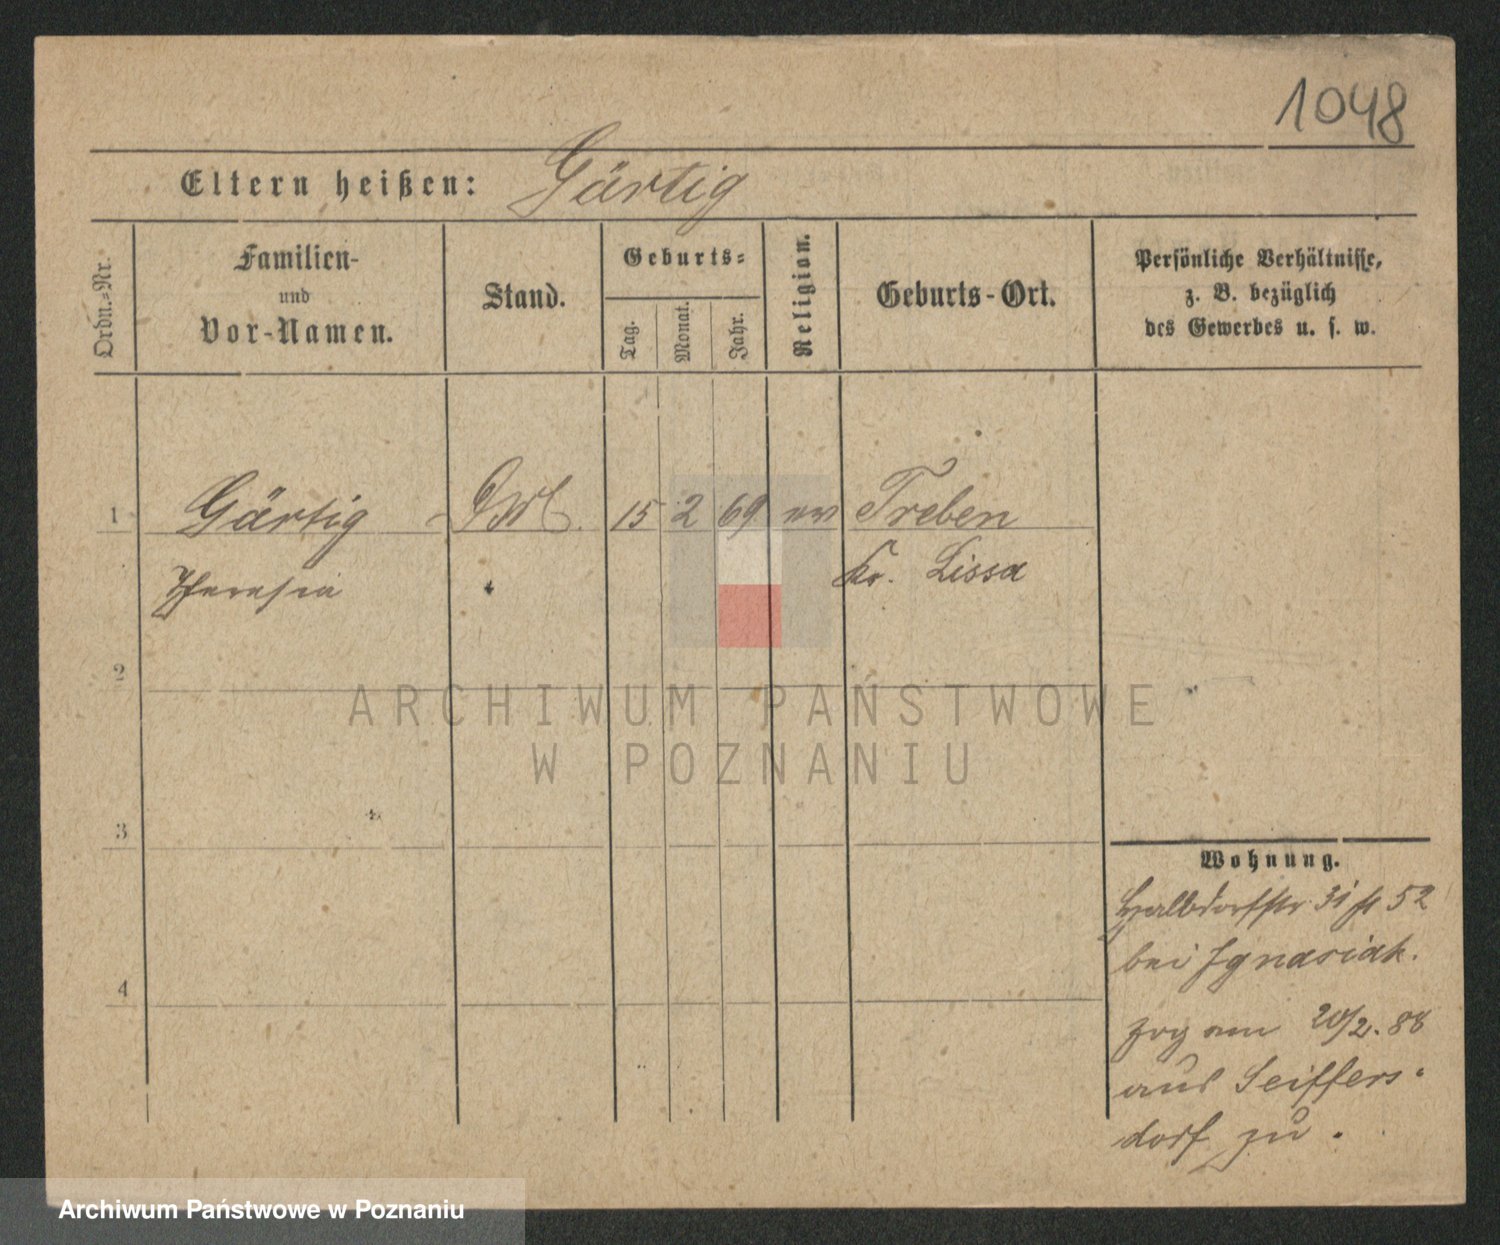 1048
Eltern heißen: Gärtig
Ordn.-Nr.
Familien-
und
Vor-Namen.
Stand.
Geburts-
Tag.
Monat.
Jahr.
Religion.
Geburts-Ort.
Persönliche Verhältnisse,
z. B. bezüglich
des Gewerbes u. s. w.
1 Gärtig 15 2 69 ev Treben
Theresia Kr. Lissa
2
ARCHIWUM PAŃSTWOWE
W POZNANIU
3
Wohnung.
Halbdorfstr 31 52
bei Ignasiak.
4
zog am 20/2. 88
aus Seiffers-
dorf zu.
Archiwum Państwowe w Poznaniu